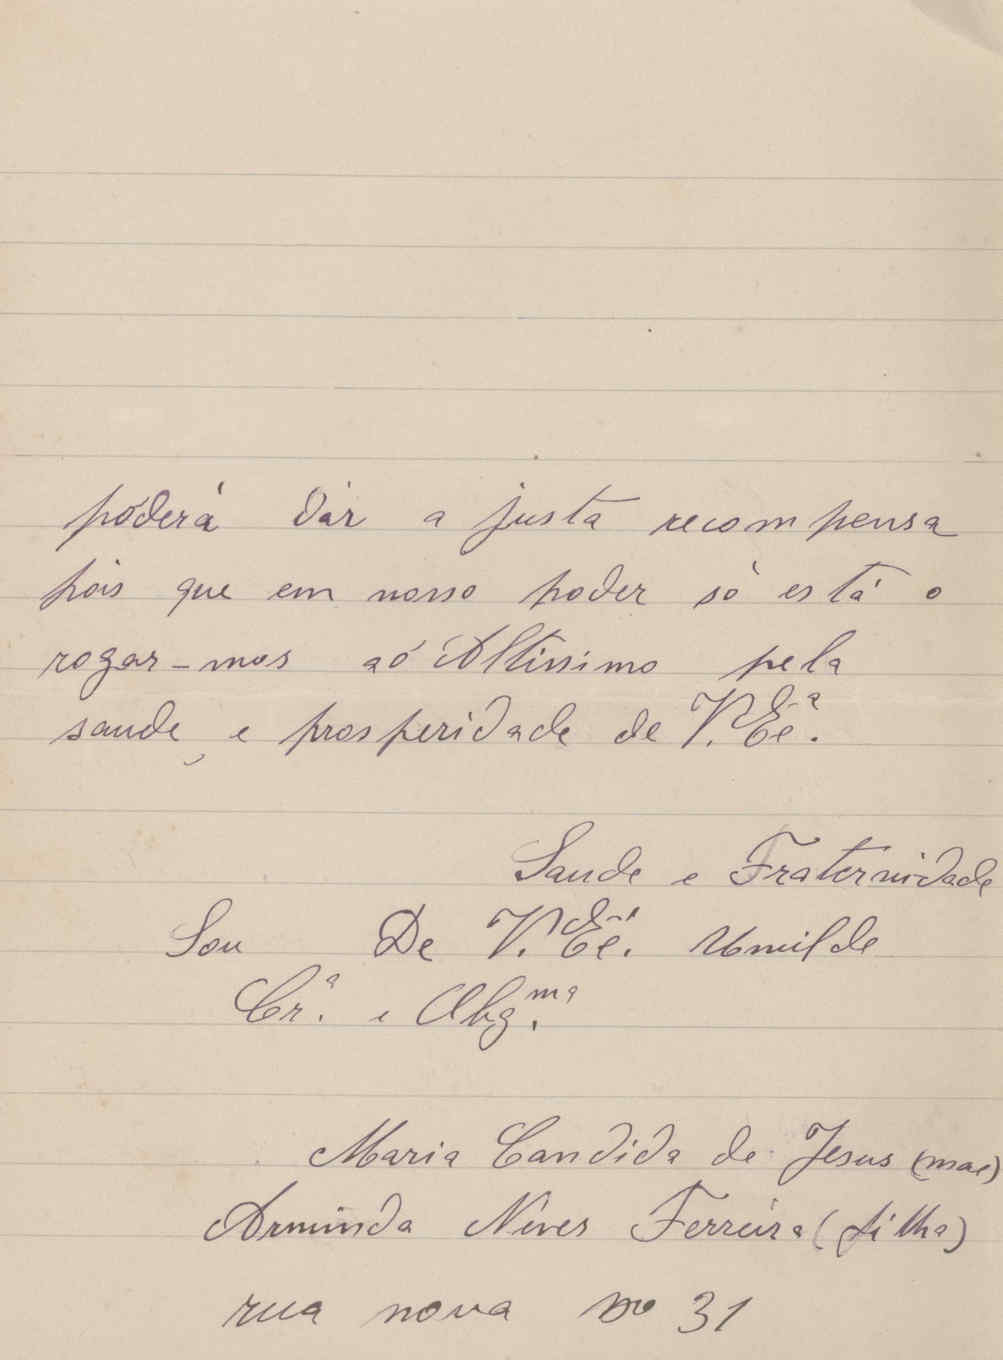 póderá dár a justa recompensa
pois que em nosso poder só está o
rogar-mos aó Altissimo pela
saude, e prosperidade de V. Ex.ª
Saude e Fraternidade
Sou De V. Ex.ª Umilde
Cr.ª e Obg.ma
Maria Candida de Jesus (mae)
Arminda Neves Ferreira (filha)
rua nova no 31